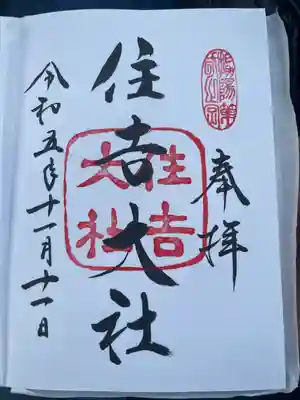 奉拝
住吉大社
住吉
大社
令和五年十一月十一日